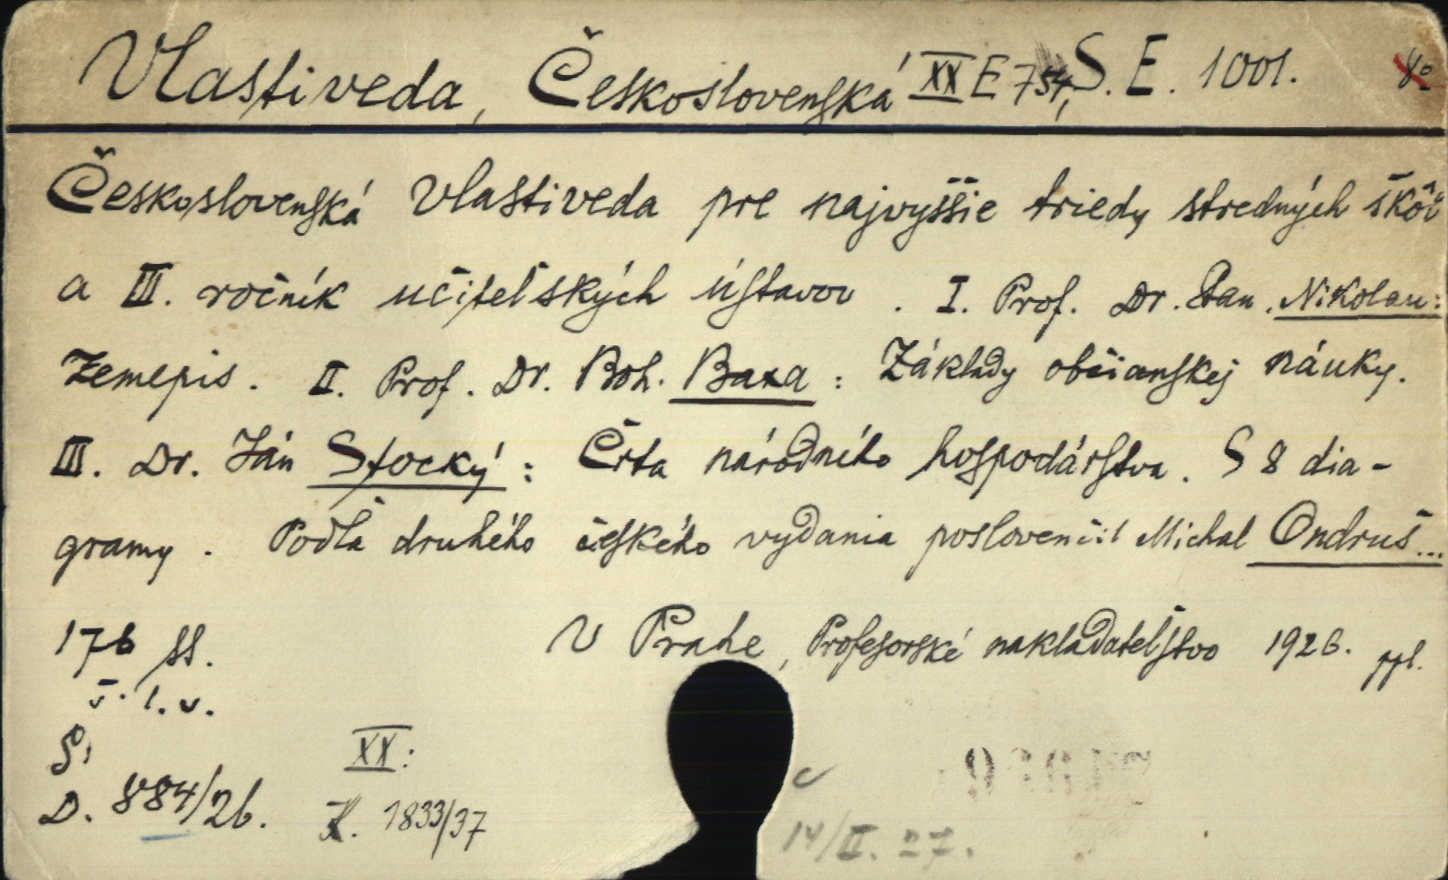 Vlastiveda, Československá XX E 754, S. E. 1001. 8°
Československá Vlastiveda pre najvyššie triedy stredných škôl
a III. ročník učiteľských ústavov. I. Prof. Dr. Stan. Nikolau:
Zemepis. II. Prof. Dr. Boh. Baxa: Základy občianskej náuky.
III. Dr. Ján Stocký: Črta národného hospodárstva. S 8 dia-
gramy. Podľa druhého českého vydania poslovenčil Michal Ondruš...
176 ss. V Prahe, Profesorské nakladateľstvo 1926. ppl.
v. l. v.
S,
XX:
D. 884/26. X. 1833/37
14/II. 27.